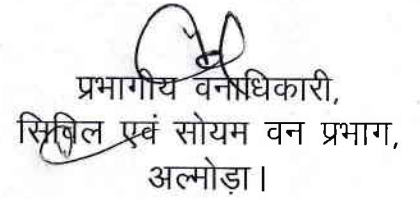 प्रभागीय वनाधिकारी,
सिविल एवं सोयम वन प्रभाग,
अल्मोड़ा।